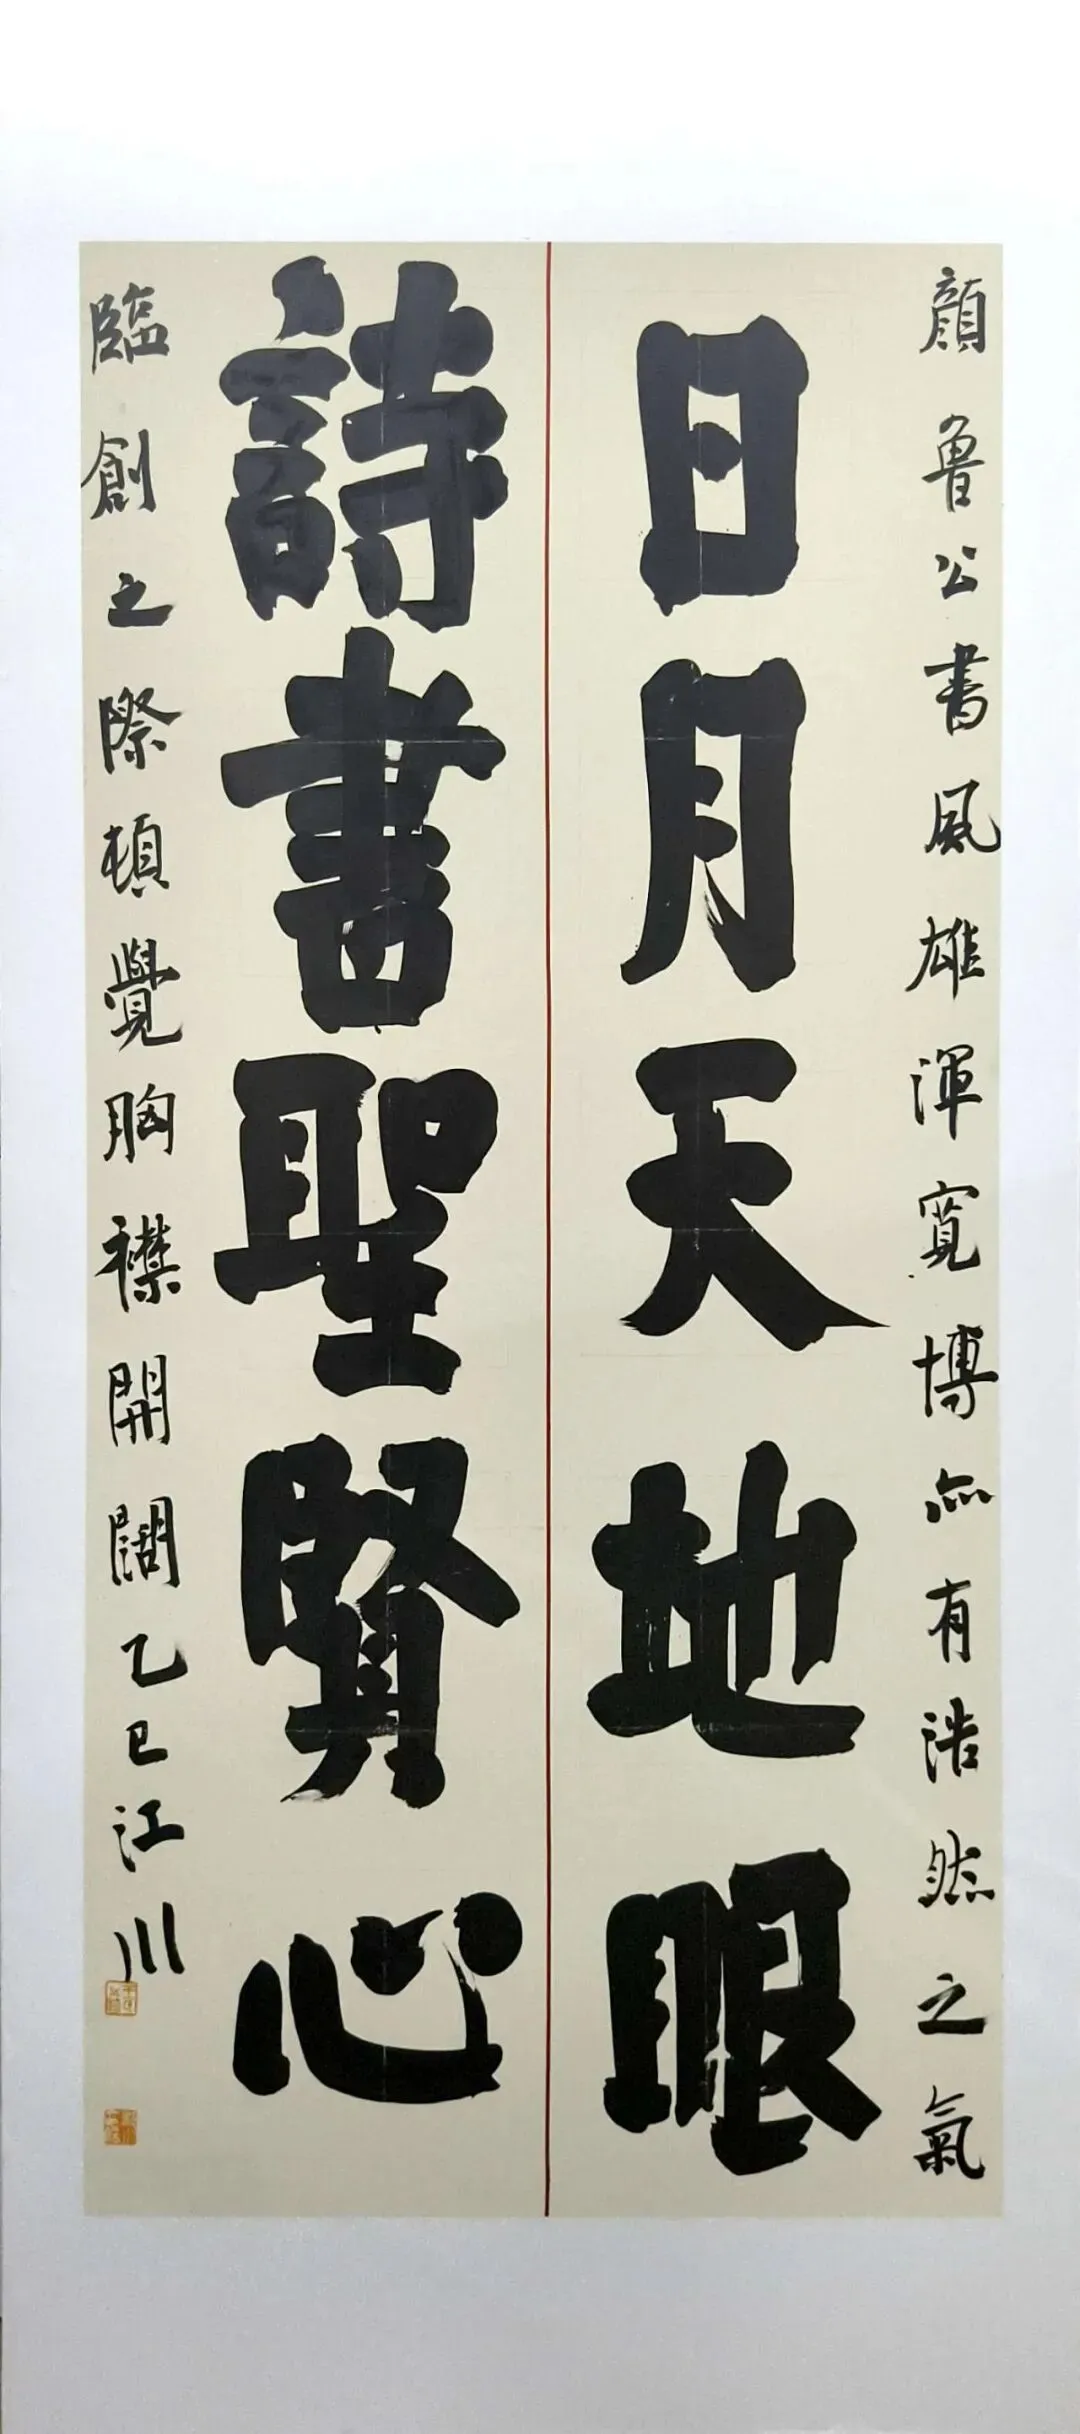 顔魯公書風雄渾寬博亦有浩然之氣
日月天地眼
詩書聖賢心
臨創之際頓覺胸襟開闊乙巳江川